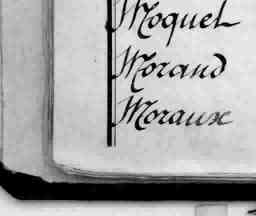 Moquet
Morand
Moraux